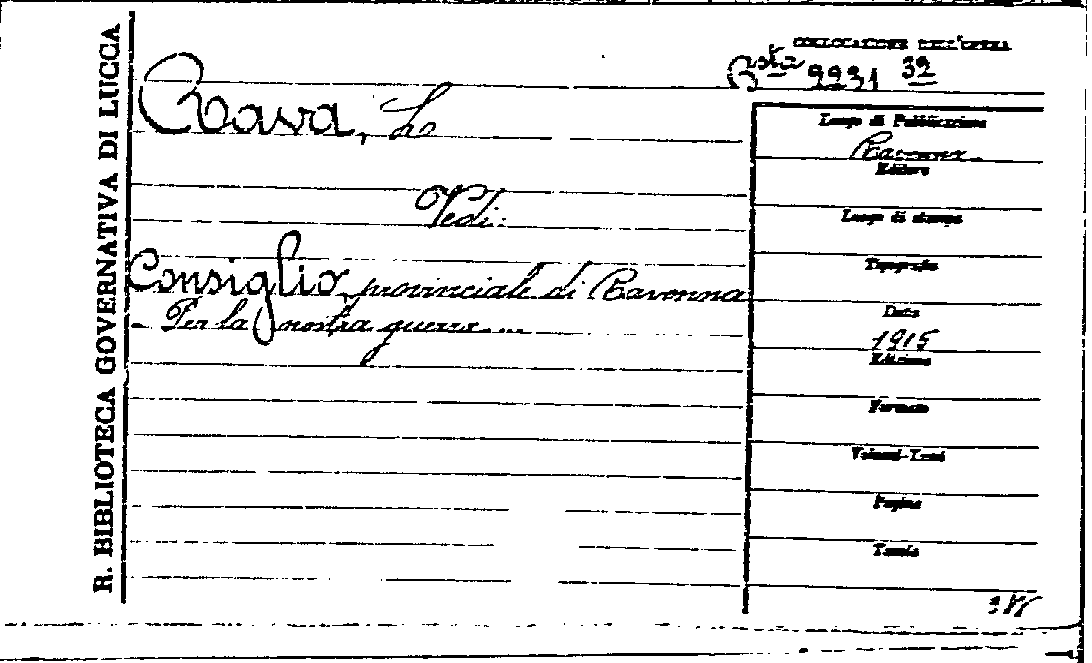 R. BIBLIOTECA GOVERNATIVA DI LUCCA
COLLOCAZIONE DELL'OPERA
Bsta 9931 32
Rava, L.
Vedi:
Consiglio provinciale di Ravenna
- Per la nostra guerra...
Luogo di Pubblicazione
Ravenna
Editore
Luogo di stampa
Tipografia
Data
1915
Edizione
Formato
Volumi-Tomi
Pagine
Tavole